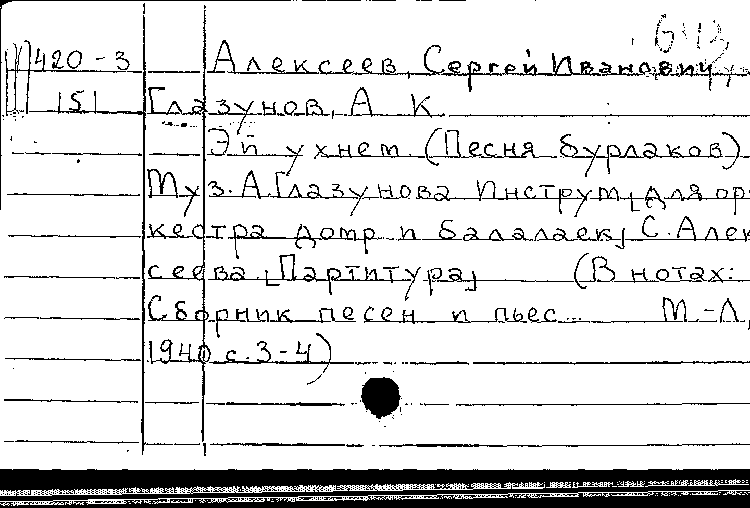 420-3 Алексеев, Сергей Иванович
151 Глазунов, А К
Эй ухнем (Песня бурлаков)
Муз. А.Глазунова Инструм[для ор
кестра домр и балалаек] С. Алек
сеева.[Партитура] (В нотах:
Сборник песен и пьес... М.-Л,
1940 с. 3-4)